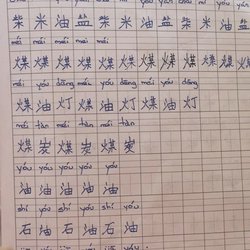 柴 米 油 盐 柴 米 油 盐 柴 米 油 盐
méi méi méi
煤 煤 煤 煤 煤 煤 煤 煤 煤 煤
méi yóu dēng méi yóu dēng méi yóu
煤 油 灯 煤 油 灯 煤 油 灯
méi tàn méi tàn méi
煤 炭 煤 炭 煤 炭
yóu yóu yóu yóu
油 油 油 油 油
shí yóu shí yóu shí yóu
石 油 石 油 石 油